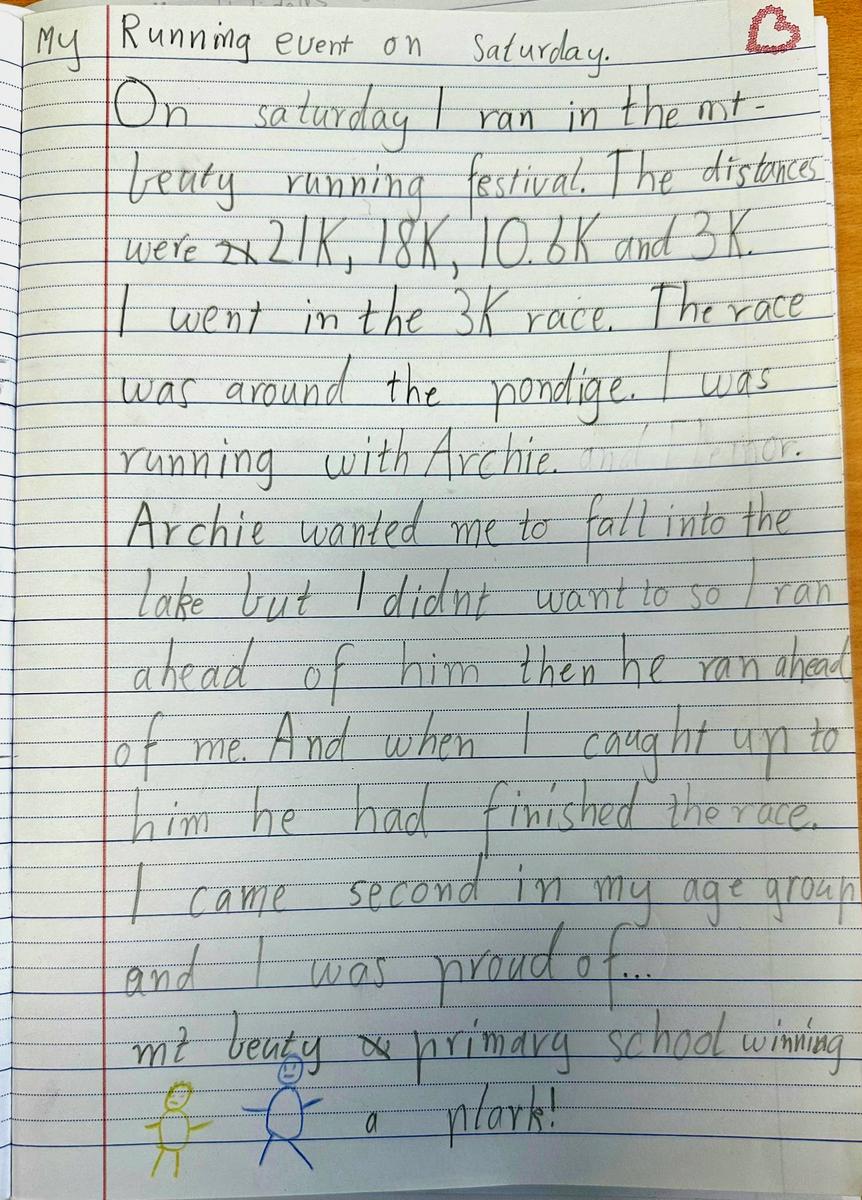 My Running event on Saturday.
On saturday I ran in the mt-
beuty running festival. The distances
were 21K, 18K, 10.6K and 3K.
I went in the 3K race. The race
was around the pondige. I was
running with Archie.
Archie wanted me to fall into the
lake but I didnt want to so I ran
ahead of him then he ran ahead
of me. And when I caught up to
him he had finished the race.
I came second in my age group
and I was proud of...
mt beuty primary school winning
a plark!